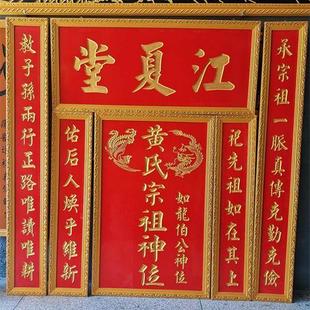 江夏堂
承宗祖一脈真傳克勤克儉
教子孫兩行正路唯讀唯耕
祀先祖如在其上
佑后人煥乎維新
黃氏宗祖神位
如龍伯公神位